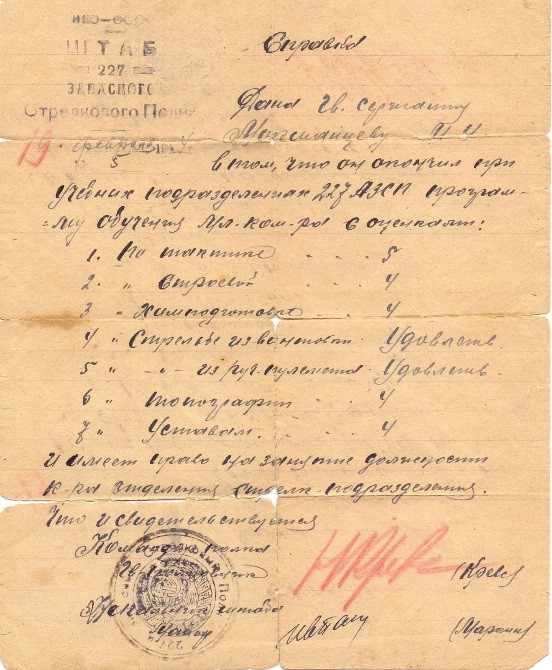 НКО-СССР
ШТАБ
227
ЗАПАСНОГО
Стрелкового Полка
19 февраля
№ 5
Справка
Дана Гв. сержанту
в том, что он окончил при
учебных подразделениях 227 АЗСП програм-
му обучения мл. ком-ра с оценками:
1. По тактике . . . 5
2. " Строевой . . . 4
3 " Химподготовке . 4
4 " Стрельбе из винтовки . Удовлетв.
5 " -"- из руч. пулемета . Удовлетв.
6 " топографии . . 4
7 " Уставам. . . 4
и имеет право на занятие должности
к-ра отделения стрелк. подразделения.
Что и свидетельствуется
Командир полка
Гв.
Начальник штаба
Майор